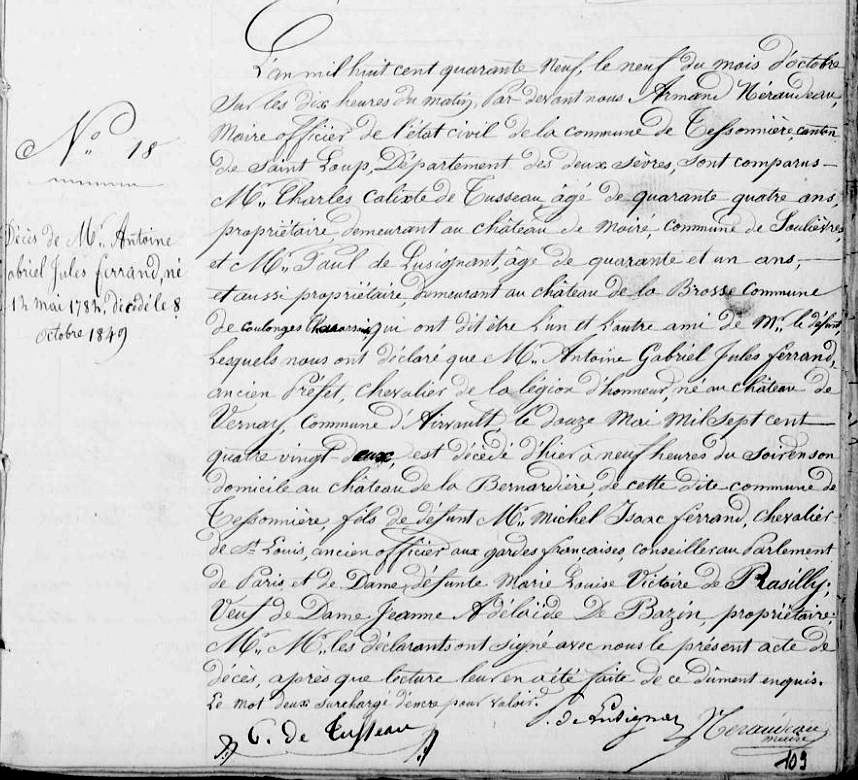 N.º 18
Décès de Mr. Antoine
Gabriel Jules ferrand, né
12 mai 1782, décédé le 8
octobre 1849
L'an mil huit cent quarante Neuf, le neuf du mois d'octobre
Sur les dix heures du matin, Par devant nous Armand Néraudeau,
Maire officier de l'état civil de la commune de Tessonnière, canton
de Saint Loup, Département des deux Sèvres, sont comparus —
Mr. Charles Calixte de Tusseau âgé de quarante quatre ans,
propriétaire demeurant au château de Moiré, commune de Soulièvres,
et Mr. Paul de Lusignant, âgé de quarante et un ans, —
et aussi propriétaire demeurant au château de la Brosse commune
de coulonges qui ont dit être L'un et L'autre ami de Mr. le défunt
Lesquels nous ont déclaré que Mr. Antoine Gabriel Jules ferrand,
ancien Préfet, chevalier de la légion d'honneur, né au château de
Vernay, commune d'Airvault, le douze Mai Mil Sept cent —
quatre vingt-deux, est décédé d'hier à neuf heures du Soir en son
domicile au château de la Bernardière, de cette dite commune de
Tessonnière, fils de défunt Mr. Michel Isaac ferrand, chevalier
de St. Louis, ancien officier aux gardes françaises, conseiller au Parlement
de Paris, et de Dame défunte Marie Louise Victoire de Rasilly;
Veuf de Dame Jeanne Adélaïde De Bazin, propriétaire;
Mr. Mr. les déclarants ont signé avec nous le présent acte de
décès, après que lecture leur en a été faite de ce dûment enquis.
Le mot deux surchargé d'encre pour valoir.
C. de Tusseau
P. de Lusignan
Neraudeau
maire
109